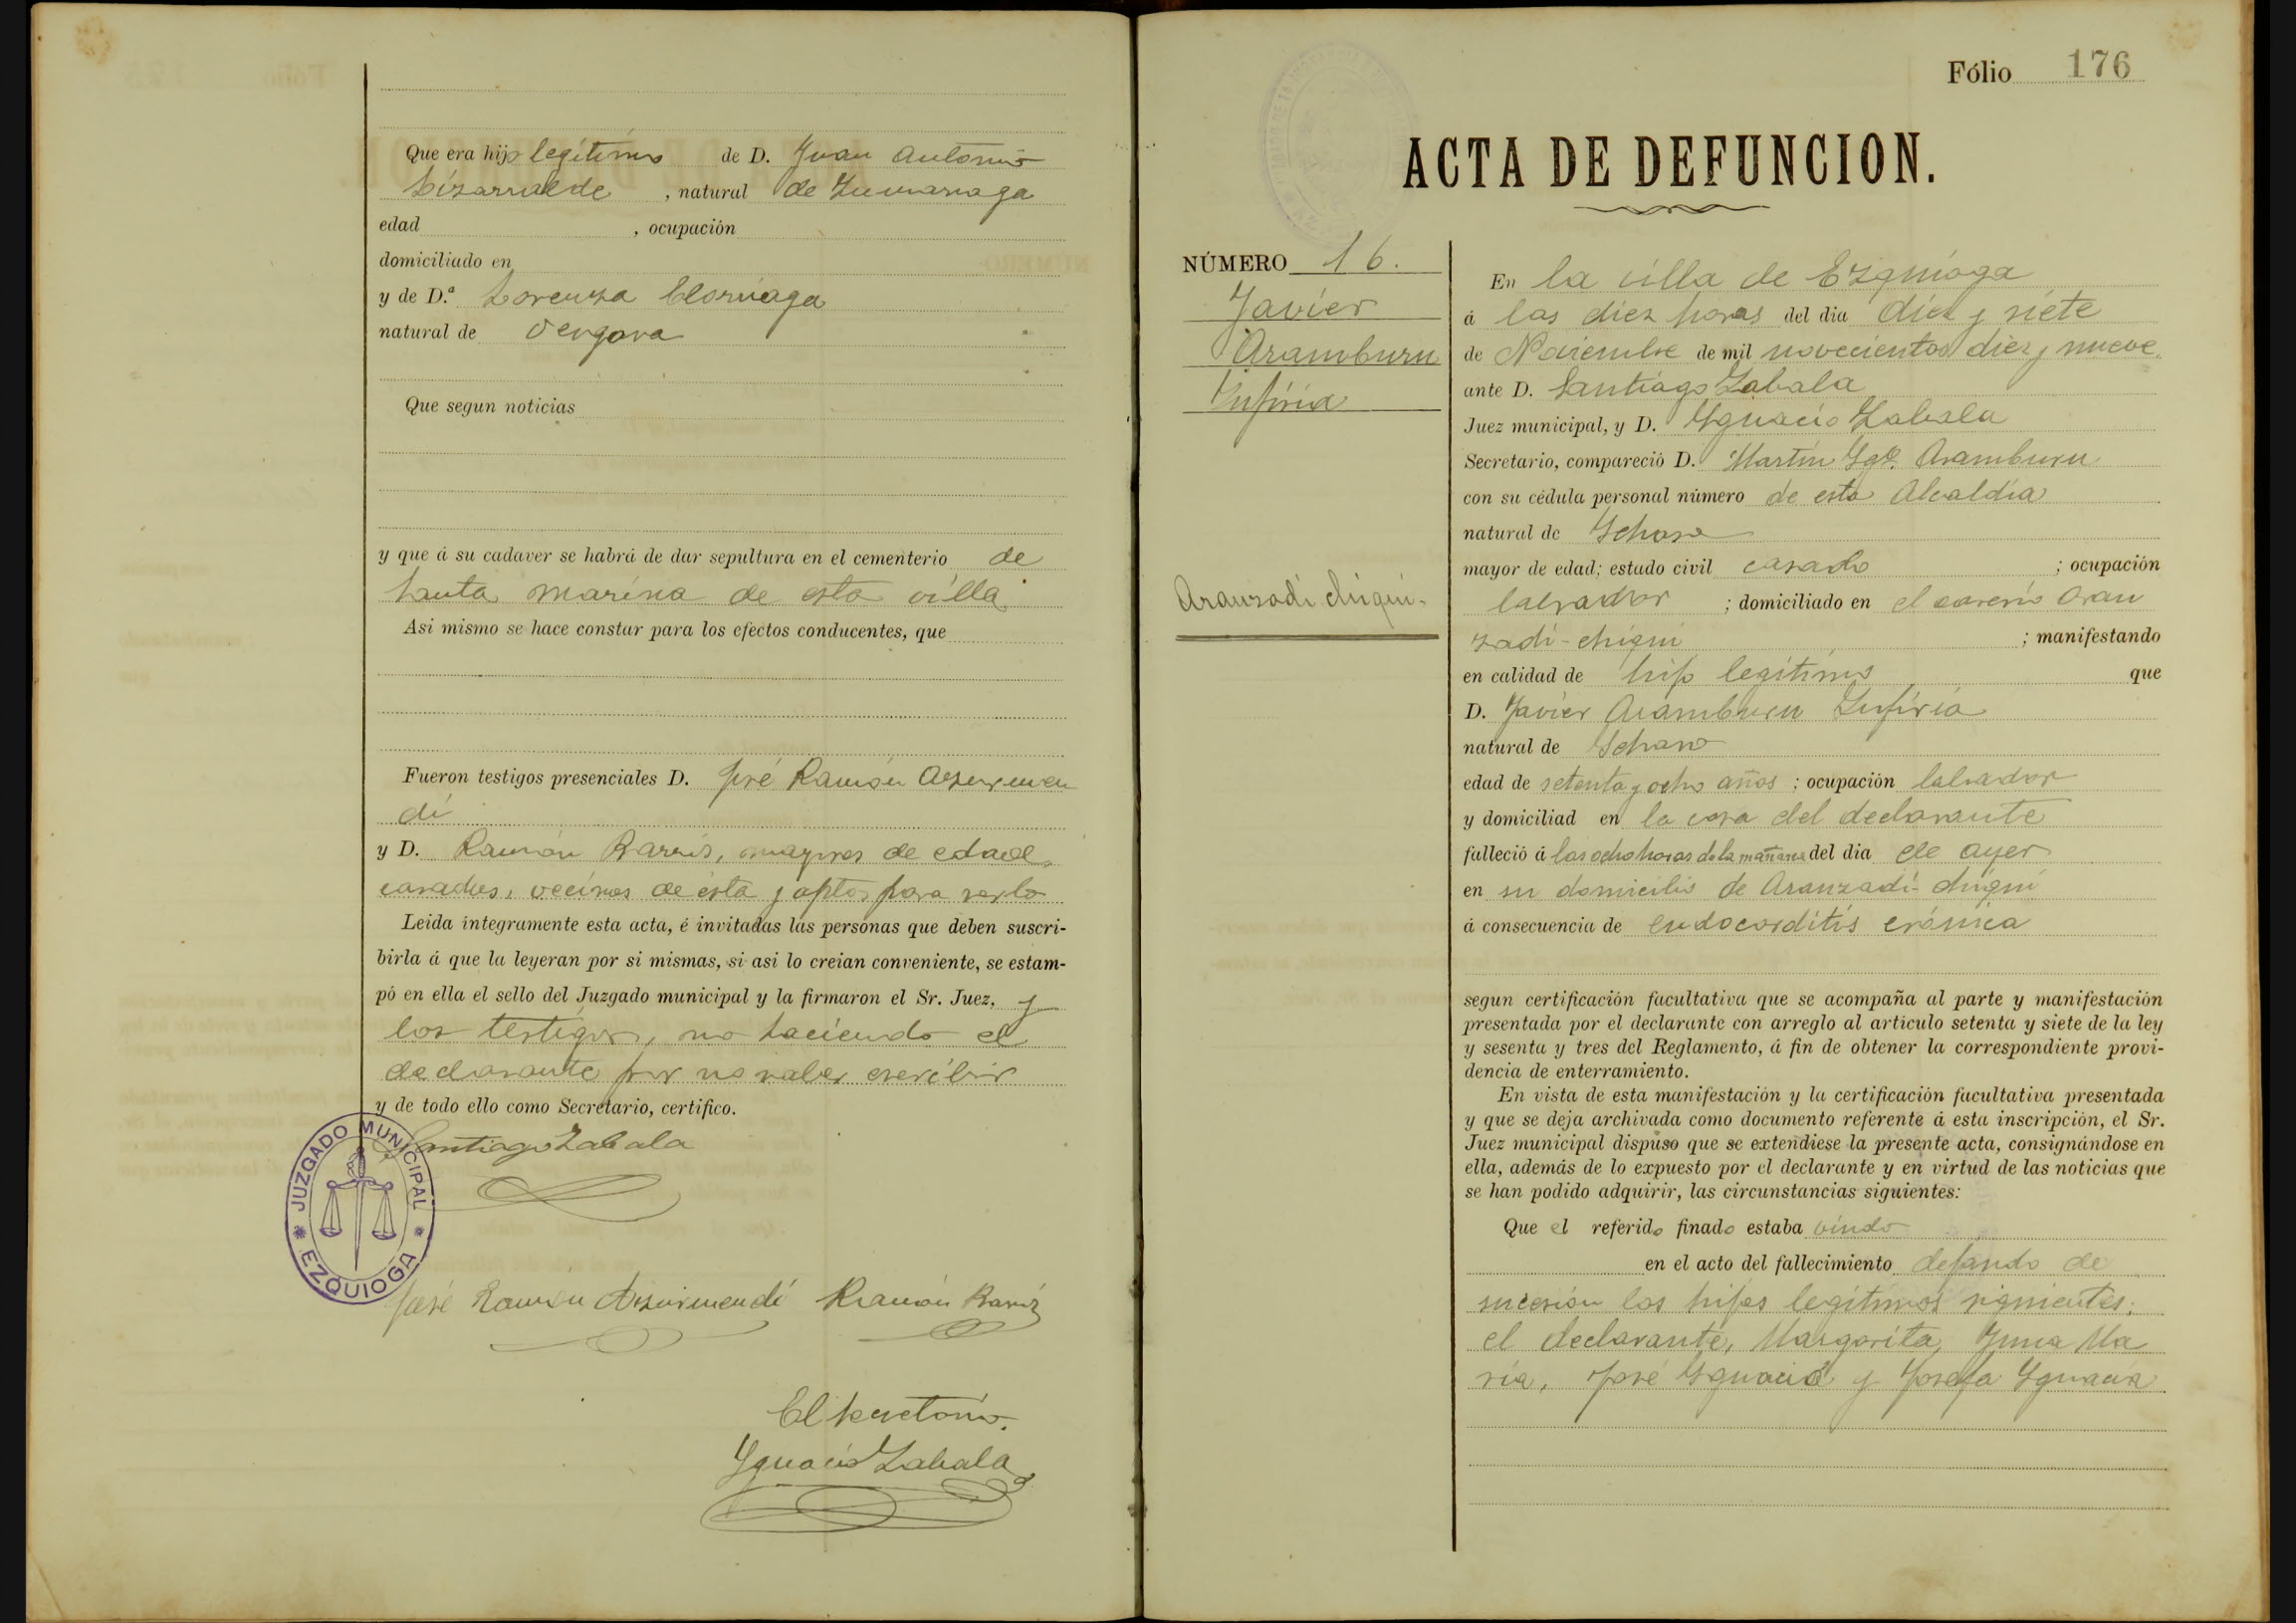 Que era hijo legítimo de D. Juan Antonio
Lizarralde, natural de Zumarraga
edad , ocupación
domiciliado en
y de D.ª Lorenza Elorriaga
natural de Vergara
Que segun noticias
y que á su cadaver se habrá de dar sepultura en el cementerio de
Santa Marina de esta villa.
Asi mismo se hace constar para los efectos conducentes, que
Fueron testigos presenciales D. José Ramón Azurmen
di
y D. Ramón Barriz, mayores de edad,
casados, vecinos de ésta y aptos para serlo
Leida integramente esta acta, é invitadas las personas que deben suscri-
birla á que la leyeran por si mismas, si asi lo creian conveniente, se estam-
pó en ella el sello del Juzgado municipal y la firmaron el Sr. Juez, y
los testigos, no haciendo el
declarante por no saber escribir
y de todo ello como Secretario, certifico.
Santiago Zabala
JUZGADO MUNICIPAL
EZQUIOGA
José Ramón Azurmendi Ramón Barriz
El Secretario.
Ygnacio Zabala
Fólio 176
ACTA DE DEFUNCION.
NÚMERO 16.
Javier
Aramburu
Aranzadi chiqui.
En la villa de Ezquioga
á las diez horas del dia diez y siete
de Noviembre de mil novecientos diez y nueve
ante D. Santiago Zabala
Juez municipal, y D. Ygnacio Zabala
Secretario, compareció D. Martín Ygº. Aramburu
con su cédula personal número de esta Alcaldía
natural de Ychaso
mayor de edad; estado civil casado ; ocupación
labrador ; domiciliado en el caserío Aran
zadi-chiqui ; manifestando
en calidad de hijo legítimo que
D. Javier Aramburu
natural de Ychaso
edad de setenta y ocho años ; ocupación labrador
y domiciliad en la casa del declarante
falleció á las ocho horas de la mañana del dia de ayer
en su domicilio de Aranzadi-chiqui
á consecuencia de endocarditis crónica
segun certificación facultativa que se acompaña al parte y manifestación
presentada por el declarante con arreglo al articulo setenta y siete de la ley
y sesenta y tres del Reglamento, á fin de obtener la correspondiente provi-
dencia de enterramiento.
En vista de esta manifestación y la certificación facultativa presentada
y que se deja archivada como documento referente á esta inscripción, el Sr.
Juez municipal dispuso que se extendiese la presente acta, consignándose en
ella, además de lo expuesto por el declarante y en virtud de las noticias que
se han podido adquirir, las circunstancias siguientes:
Que el referido finado estaba viudo
en el acto del fallecimiento dejando de
sucesión los hijos legítimos siguientes:
el declarante, Margarita, Juana Ma
ria, José Ygnacio y Josefa Ygnacia